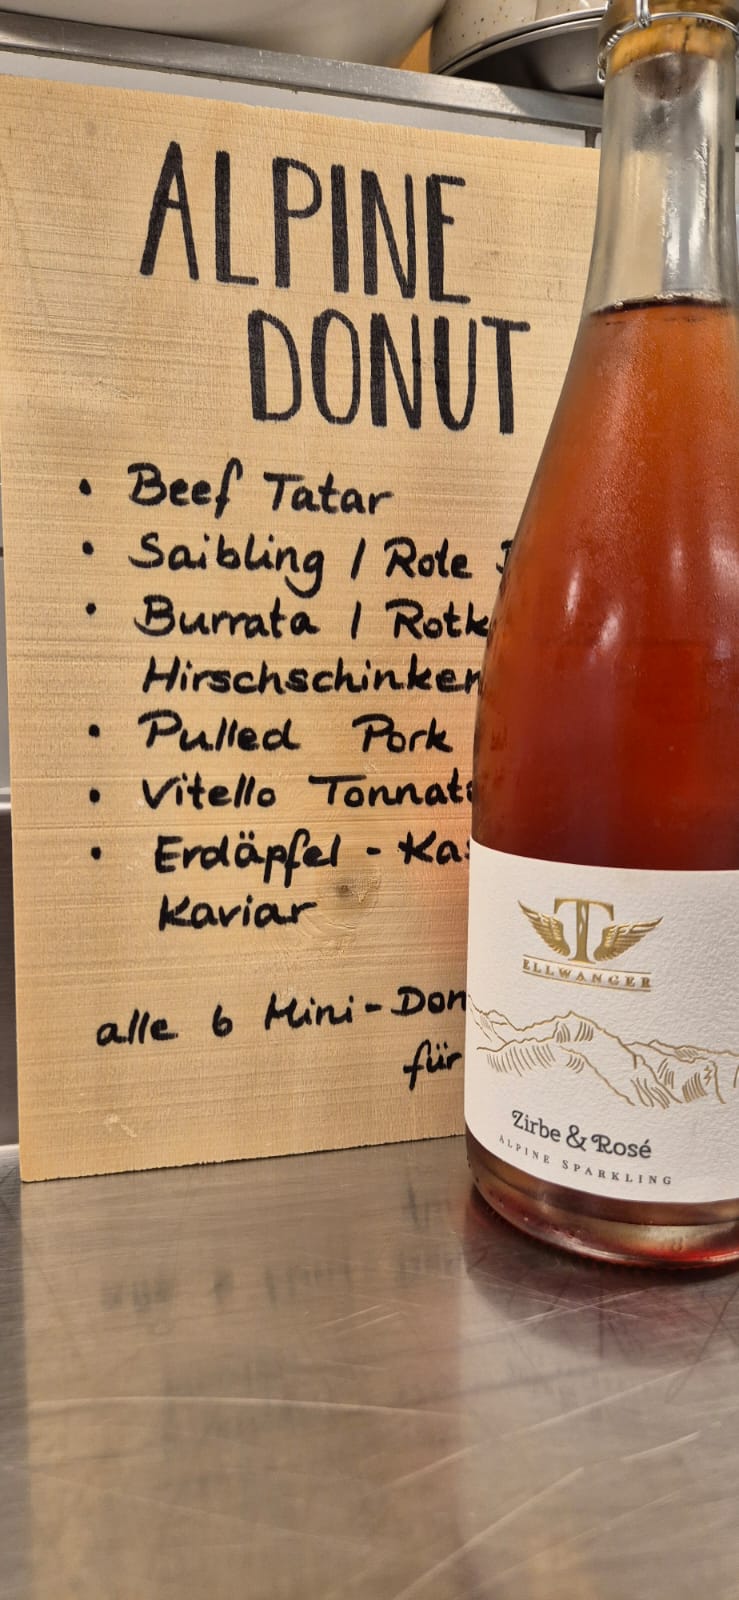 ALPINE
DONUT
• Beef Tatar
• Saibling / Rote
• Burrata / Rotk
Hirschschinken
• Pulled Pork
• Vitello Tonnato
• Erdäpfel - Kas
Kaviar
alle 6 Mini-Don
für
T
ELLWANGER
Zirbe & Rosé
ALPINE SPARKLING